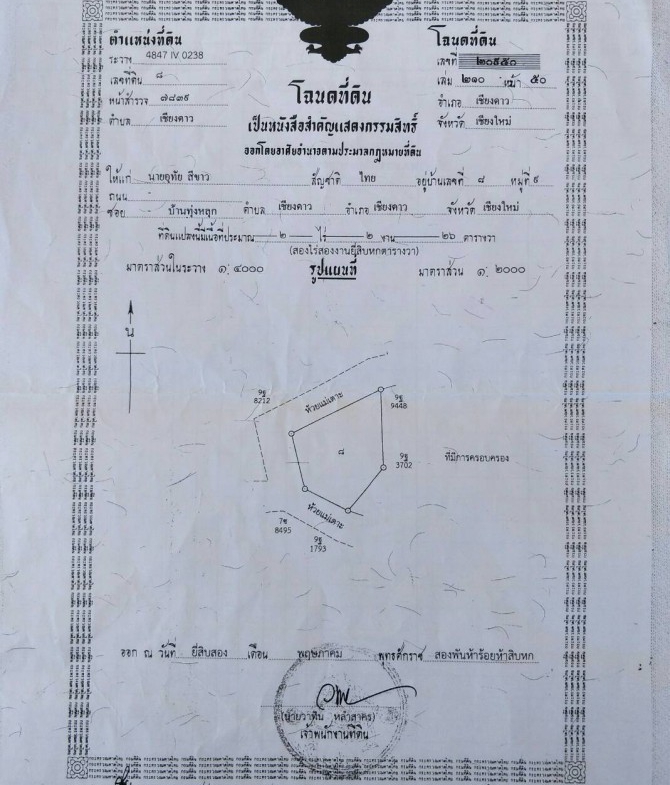 ตำแหน่งที่ดิน
ระวาง 4847 IV 0238
เลขที่ดิน ๘
หน้าสำรวจ ๗๘๓๙
ตำบล เชียงดาว
โฉนดที่ดิน
เลขที่ ๒๐๙๕๐
เล่ม ๒๑๐ หน้า ๕๐
อำเภอ เชียงดาว
จังหวัด เชียงใหม่
โฉนดที่ดิน
เป็นหนังสือสำคัญแสดงกรรมสิทธิ์
ออกโดยอาศัยอำนาจตามประมวลกฎหมายที่ดิน
ให้แก่ นายอุทัย สีขาว สัญชาติ ไทย อยู่บ้านเลขที่ ๘ หมู่ที่ ๙
ถนน
ซอย บ้านทุ่งหลุก ตำบล เชียงดาว อำเภอ เชียงดาว จังหวัด เชียงใหม่
ที่ดินแปลงนี้มีเนื้อที่ประมาณ ๒ ไร่ ๒ งาน ๒๖ ตารางวา
(สองไร่สองงานยี่สิบหกตารางวา)
มาตราส่วนในระวาง ๑: ๔๐๐๐ รูปแผนที่ มาตราส่วน ๑: ๒๐๐๐
น
9ฐ
8212
ห้วยแม่เตาะ
9ฐ
9448
๘
9ฐ
3702
ที่มีการครอบครอง
ห้วยแม่เตาะ
7ซ
8495
9ฐ
1793
ออก ณ วันที่ ยี่สิบสอง เดือน พฤษภาคม พุทธศักราช สองพันห้าร้อยห้าสิบหก
เจ้าพนักงานที่ดิน